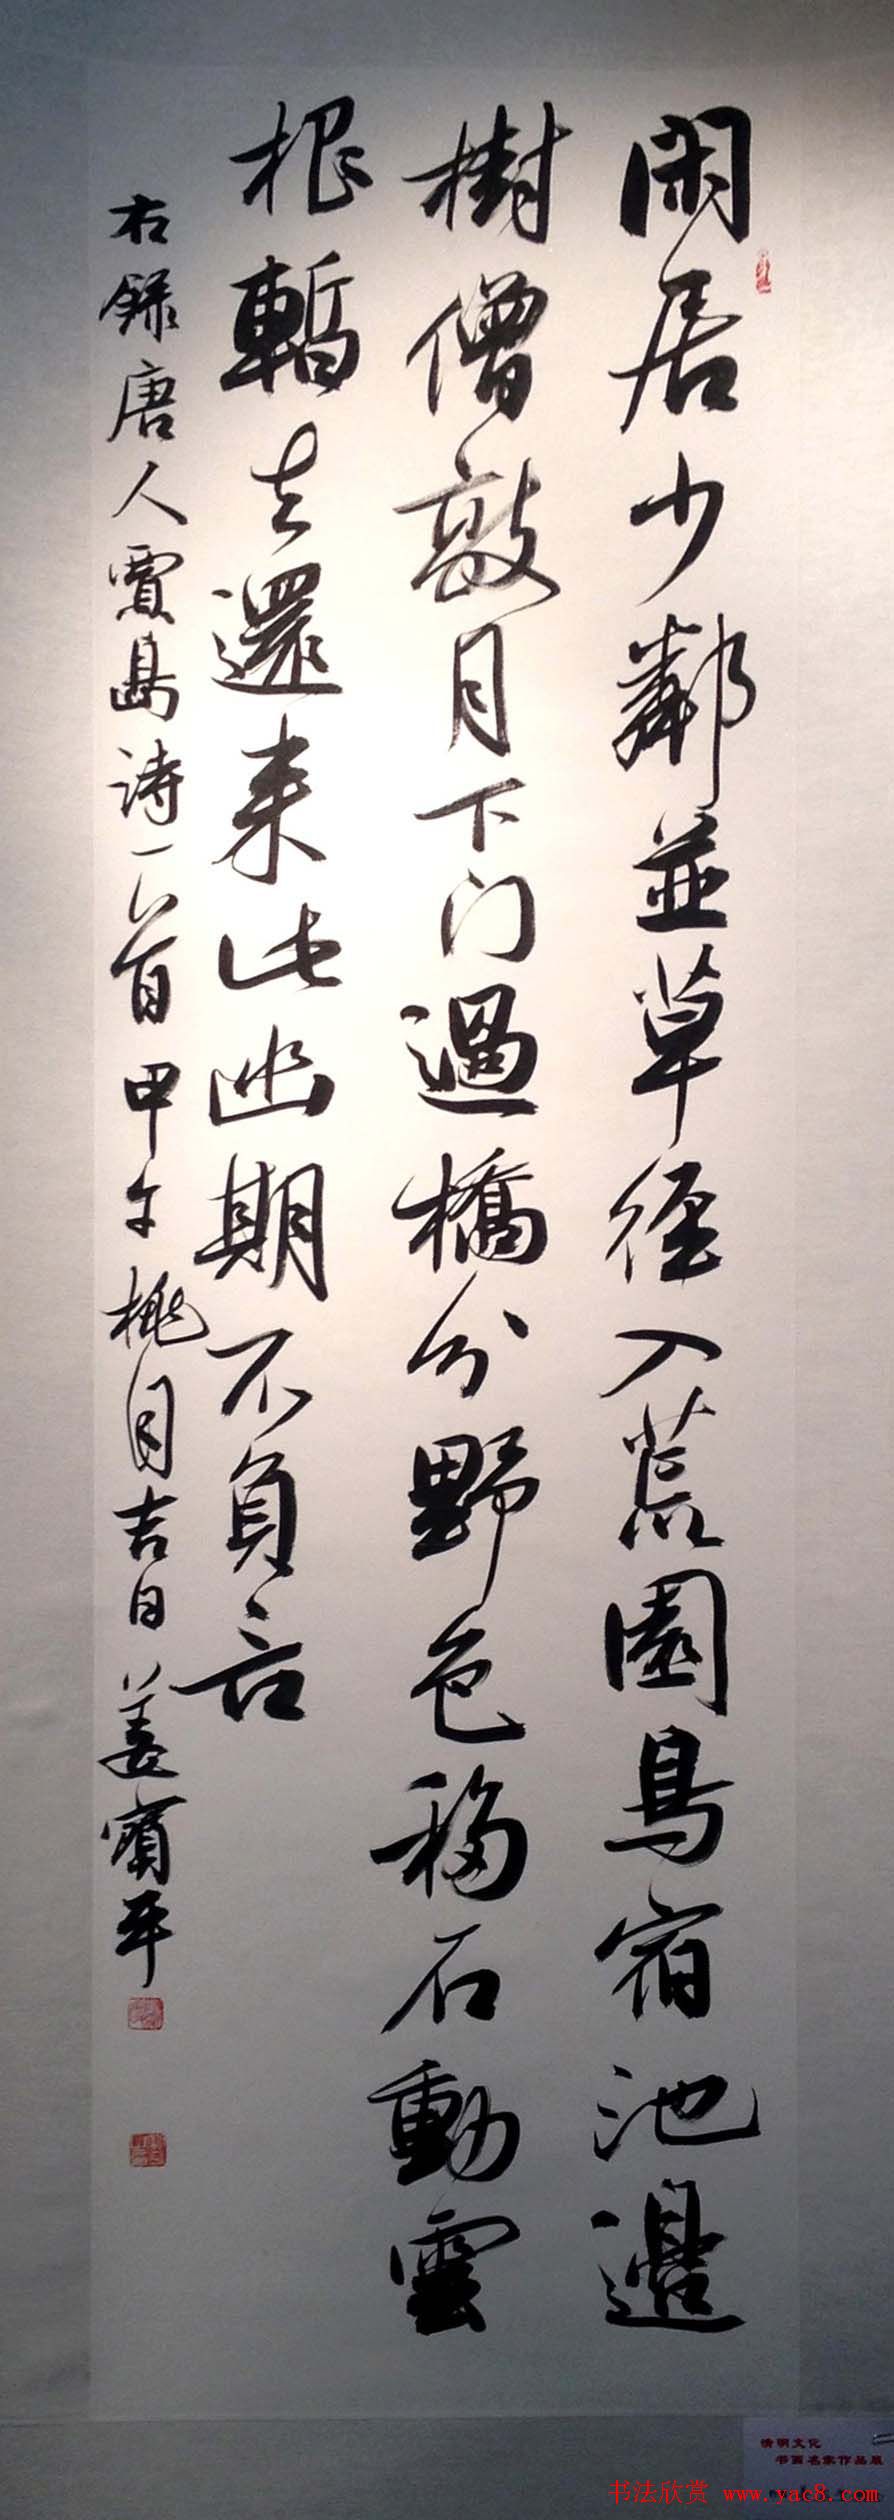 閑居少鄰並草径入荒園鳥宿池邊
樹僧敲月下门過橋分野色移石動雲
根暫去還来此幽期不負言
右録唐人賈島诗一首甲午桃月吉日姜寶平
清明文化
书画名家作品展
书法欣赏 www.yac8.com